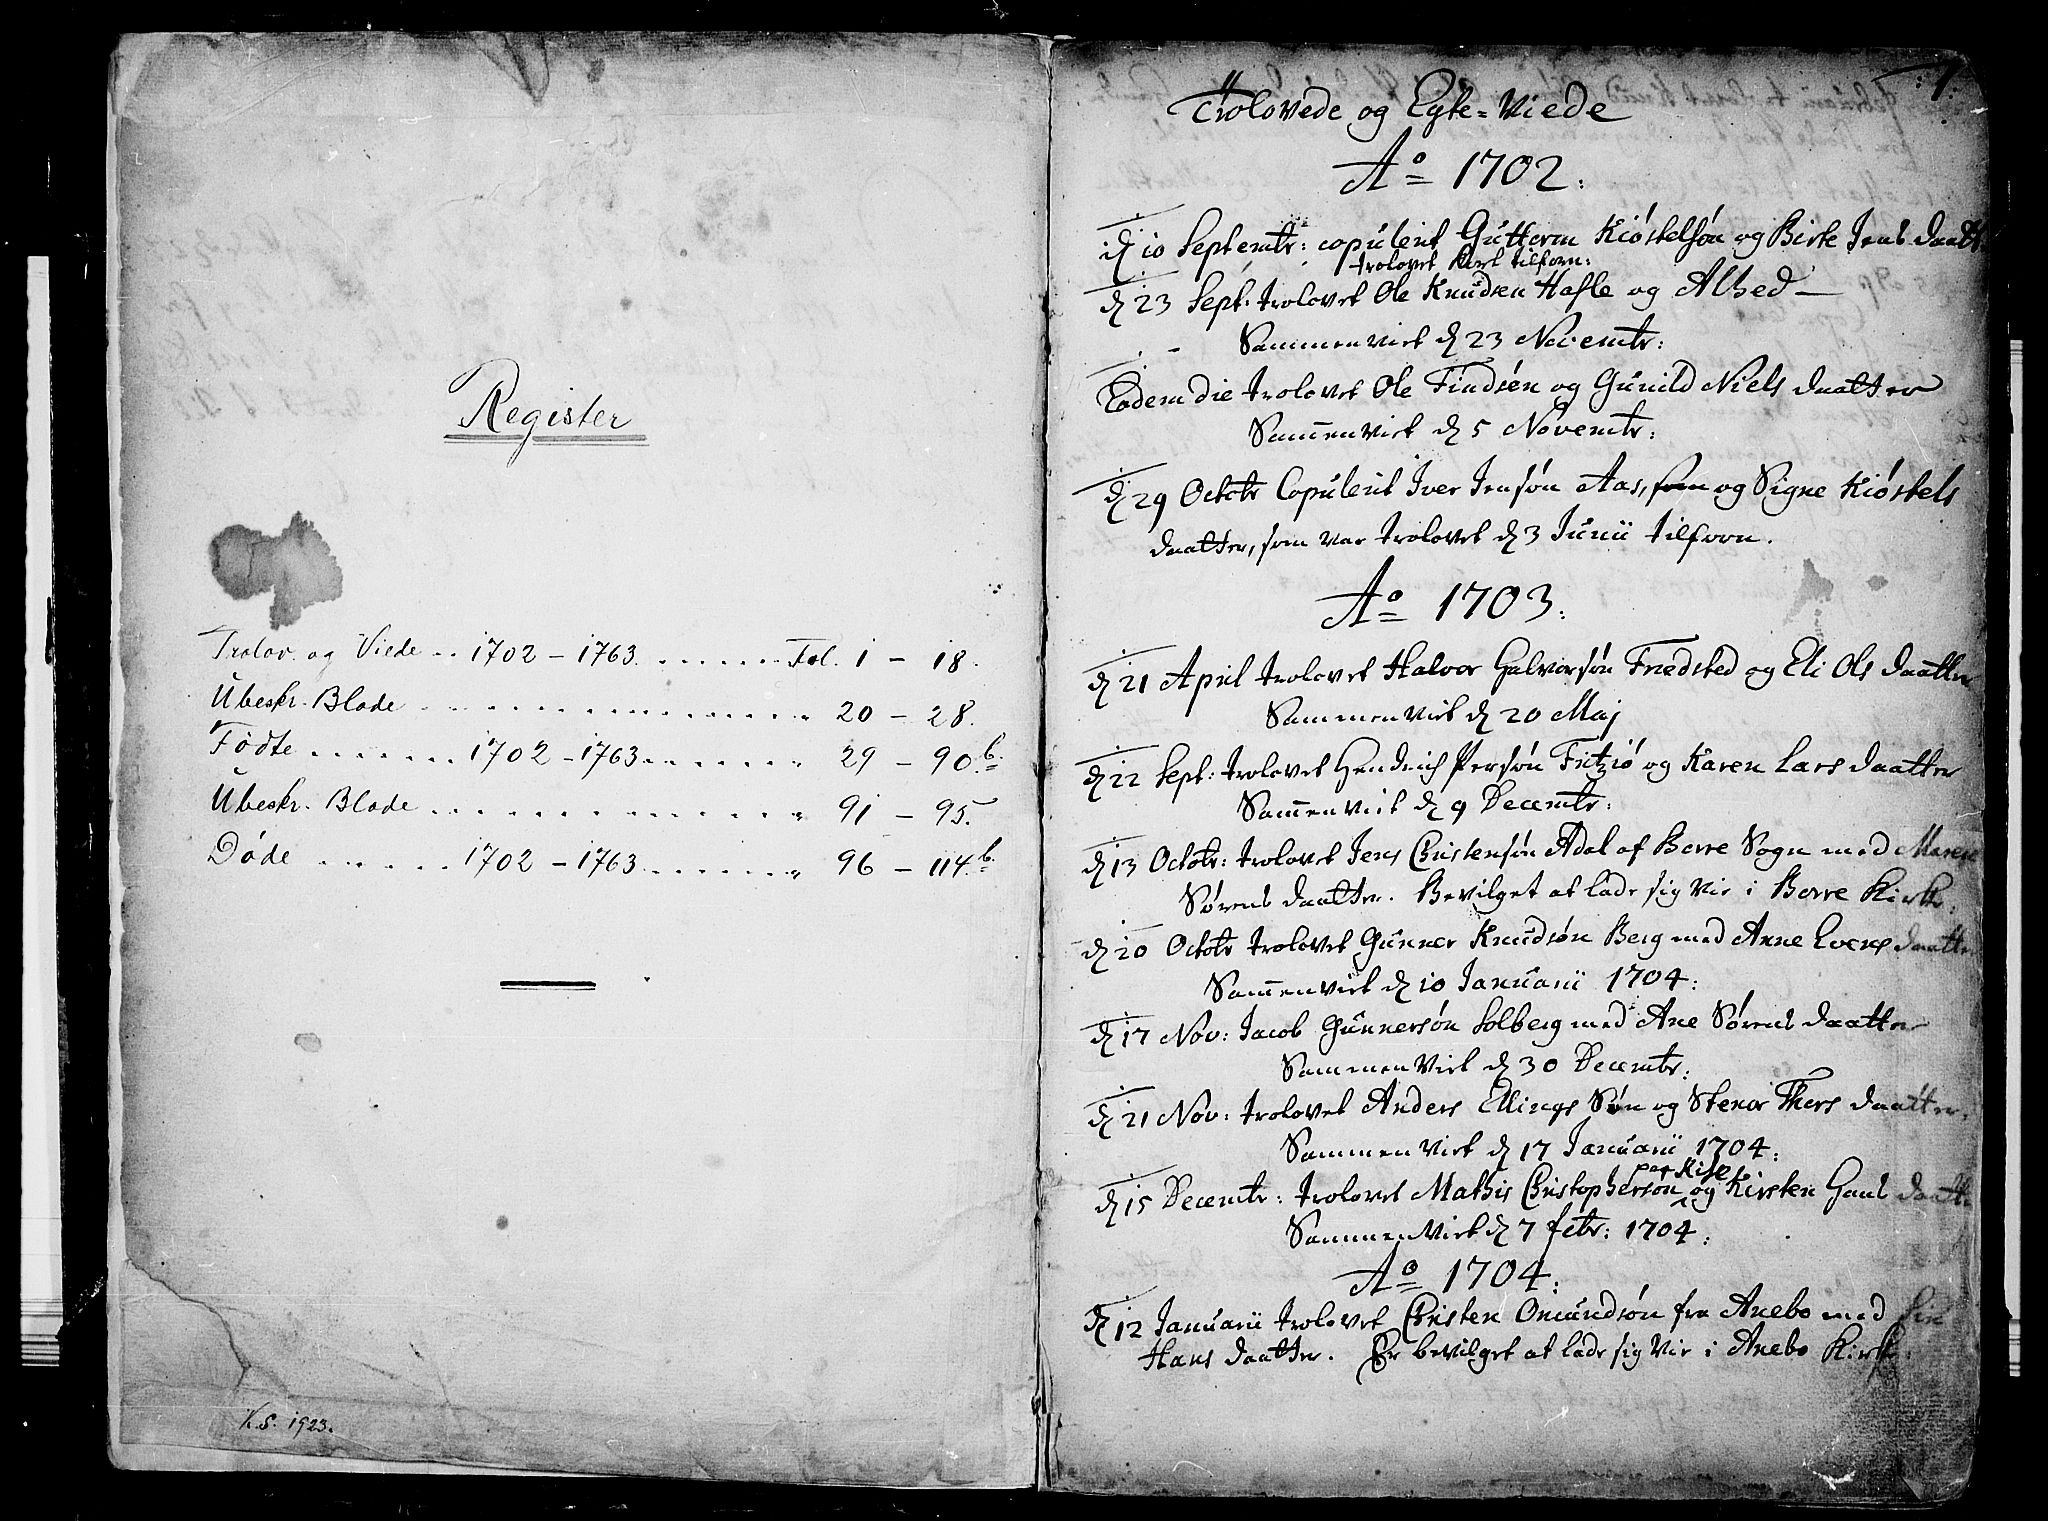 Register
Trolov. og Viede .. 1702 - 1763 ....... Fol. 1 - 18.
Ubeskr. Blade ................. " 20 - 28.
Fødte ....... 1702 - 1763 ....... " 29 - 90.b.
Ubeskr. Blade ................. " 91 - 95.
Døde ...... 1702 - 1763 ....... " 96 - 114.b.
K.S. 1923.
:1:
Trolovede og Egte=Viede
Ao 1702:
d 10 Septembr: copulerit Guttorm Kiøstelsøn og Birte Jens daatter
trolovet tilforn:
d 23 Sept: trolovet Ole Knudsen Hafle og Alhed —
Sammenviet d 23 Novembr:
Eodem die trolovet Ole Findsen og Gunild Niels daatter
Sammenviet d 5 Novembr:
d 29 Octobr Copulerit Iver Jensøn Aas, som og Signe Kiøstels
daatter, som var trolovet d 3 Junii tilforn.
Ao 1703:
d 21 April trolovet Halvor Halvorsøn Fredsted og Eli Ols daatter
Sammenviet d 20 Maj
d 22 Sept: trolovet Hendrich Persøn Fritzø og Karen Lars daatter
Sammenviet d 9 Decembr:
d 13 Octobr: trolovet Jens Christensøn Adal af Borre Sogn med Maren
Sørens daatter. Bevilget at lade sig vie i Borre Kirke:
d 20 Octobr trolovet Gunner Knudsøn Berg med Anne Evens daatter
Sammenviet d 10 Januarii 1704:
d 17 Nov: Jacob Gunnersøn Solberg med Ane Sørens daatter
Sammenviet d 30 Decembr:
d 21 Nov: trolovet Anders Ellings Søn og Stenor Thors daatter.
Sammenviet d 17 Januarii 1704:
paa Kise
d 15 Decembr: trolovet Mathis Christophersøn og Kirsten Hans daatter
Sammenviet d 7 febr: 1704:
Ao 1704:
d 12 Januarii trolovet Christen Omundsøn fra Anebo med Siri
Hans daatter. Er bevilget at lade sig vie i Anebo Kirke.